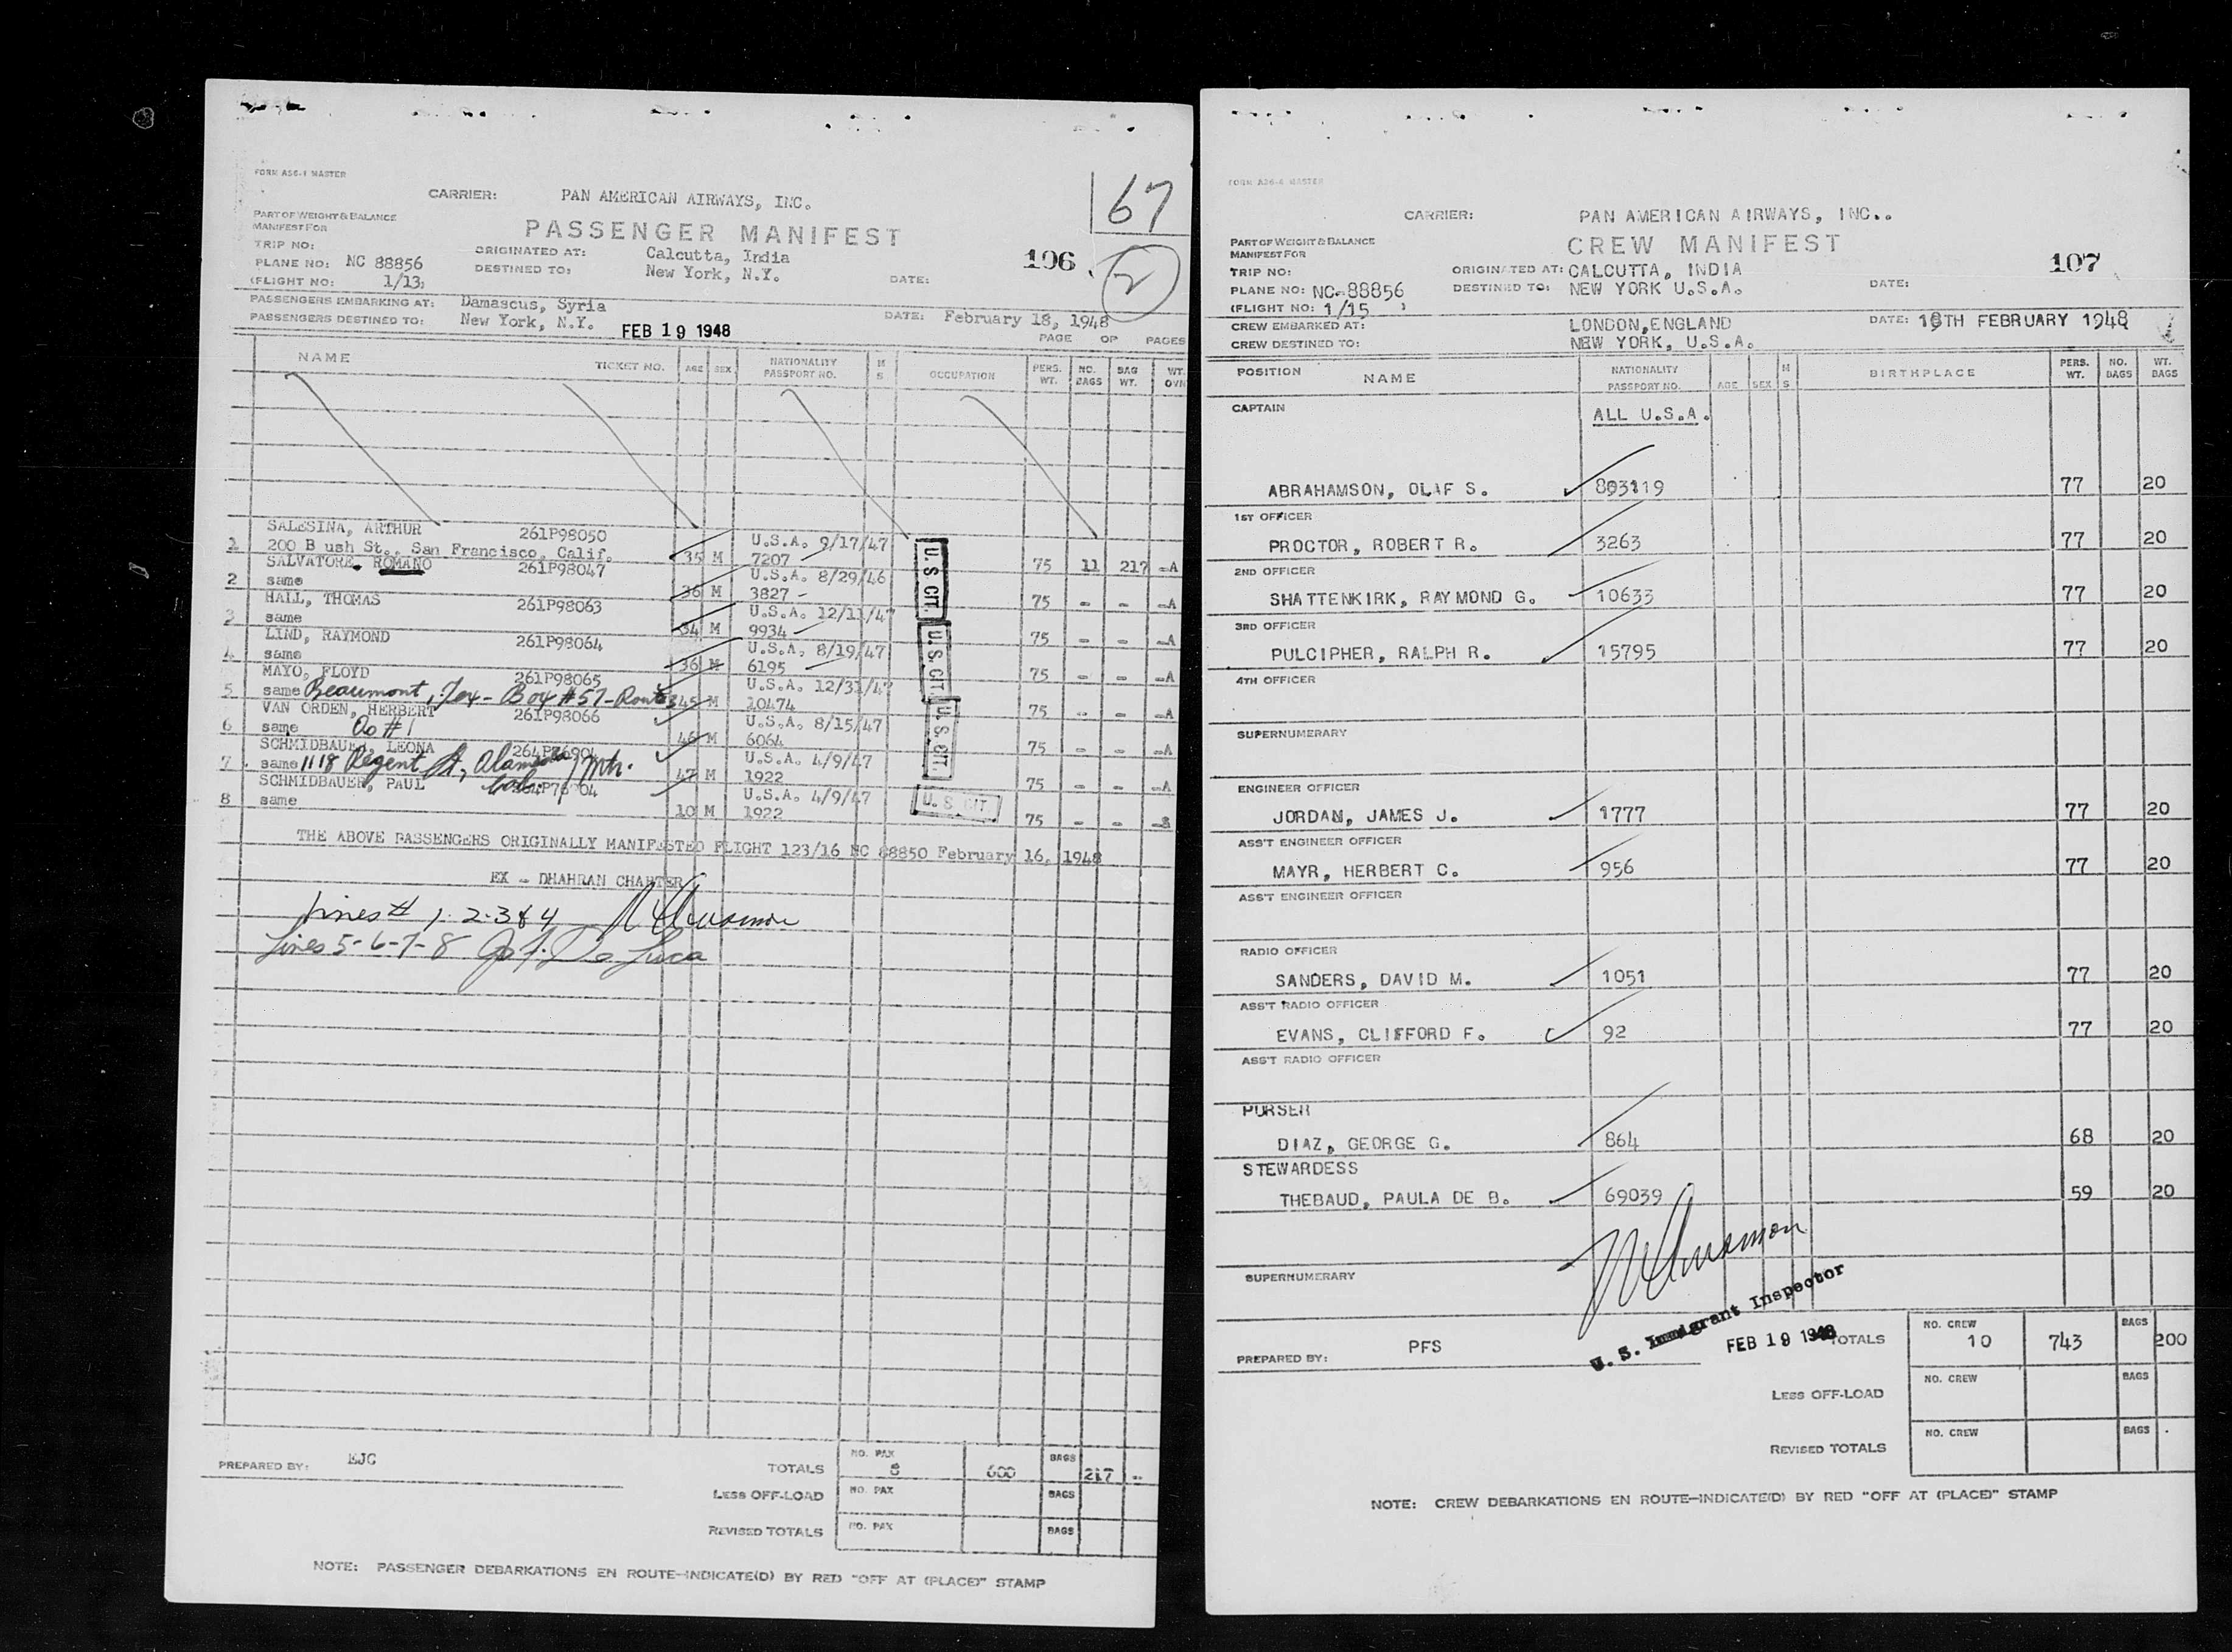 FORM A36-1 MASTER
CARRIER: PAN AMERICAN AIRWAYS, INC.
67
PART OF WEIGHT & BALANCE
MANIFEST FOR
PASSENGER MANIFEST
TRIP NO:
ORIGINATED AT: Calcutta, India
106
2
PLANE NO: NC 88856
DESTINED TO: New York, N.Y.
DATE:
(FLIGHT NO: 1/13)
PASSENGERS EMBARKING AT: Damascus, Syria
DATE: February 18, 1948
PASSENGERS DESTINED TO: New York, N.Y. FEB 19 1948
PAGE OF PAGES
NAME TICKET NO. AGE SEX NATIONALITY PASSPORT NO. M S OCCUPATION PERS. WT. NO. BAGS BAG WT. WT.
SALESINA, ARTHUR 261P98050 U.S.A. 9/17/47
1 200 B ush St., San Francisco, Calif. 35 M 7207 75 11 217 -A
SALVATORE, ROMANO 261P98047 U.S.A. 8/29/46
2 same 36 M 3827 - 75 - - -A
HALL, THOMAS 261P98063 U.S.A. 12/11/47
3 same 34 M 9934 75 - - -A
LIND, RAYMOND 261P98064 U.S.A. 8/19/47
4 same 36 M 6195 75 - - -A
MAYO, FLOYD 261P98065 U.S.A. 12/31/47
5 same Beaumont, Tex - Box #57 - Route 3 45 M 10474 75 - - -A
VAN ORDEN, HERBERT 261P98066 U.S.A. 8/15/47
6 same Do #1 46 M 6064 75 - - -A
SCHMIDBAUER, LEONA 264P76904 U.S.A. 4/9/47
7 same 1118 Regent St, Alameda Cal. 47 M 1922 75 - - -A
SCHMIDBAUER, PAUL U.S.A. 4/9/47
8 same 10 M 1922 75 - -
U.S. CIT.
U.S. CIT.
U.S. CIT.
U.S. CIT
THE ABOVE PASSENGERS ORIGINALLY MANIFESTED FLIGHT 123/16 NC 88850 February 16, 1948
EX - DHAHRAN CHARTER
Lines # 1-2-3 & 4
Lines 5-6-7-8 De Luca
PREPARED BY: EJC
TOTALS NO. PAX 8 600 BAGS 217 -
LESS OFF-LOAD NO. PAX BAGS
REVISED TOTALS NO. PAX BAGS
NOTE: PASSENGER DEBARKATIONS EN ROUTE-INDICATE(D) BY RED "OFF AT (PLACE)" STAMP
FORM A36-4 MASTER
CARRIER: PAN AMERICAN AIRWAYS, INC..
PART OF WEIGHT & BALANCE
MANIFEST FOR
CREW MANIFEST
TRIP NO:
ORIGINATED AT: CALCUTTA, INDIA
107
PLANE NO: NC-88856
DESTINED TO: NEW YORK U.S.A.
DATE:
(FLIGHT NO: 1/15 )
CREW EMBARKED AT: LONDON, ENGLAND
DATE: 18TH FEBRUARY 1948
CREW DESTINED TO: NEW YORK, U.S.A.
POSITION NAME NATIONALITY PASSPORT NO. AGE SEX M S BIRTHPLACE PERS. WT. NO. BAGS WT. BAGS
CAPTAIN ALL U.S.A.
ABRAHAMSON, OLAF S. 803119 77 20
1ST OFFICER
PROCTOR, ROBERT R. 3263 77 20
2ND OFFICER
SHATTENKIRK, RAYMOND G. 10633 77 20
3RD OFFICER
PULCIPHER, RALPH R. 15795 77 20
4TH OFFICER
SUPERNUMERARY
ENGINEER OFFICER
JORDAN, JAMES J. 1777 77 20
ASS'T ENGINEER OFFICER
MAYR, HERBERT C. 956 77 20
ASS'T ENGINEER OFFICER
RADIO OFFICER
SANDERS, DAVID M. 1051 77 20
ASS'T RADIO OFFICER
EVANS, CLIFFORD F. 92 77 20
ASS'T RADIO OFFICER
PURSER
DIAZ, GEORGE G. 864 68 20
STEWARDESS
THEBAUD, PAULA DE B. 69039 59 20
SUPERNUMERARY
U. S. Immigrant Inspector
FEB 19 1948
PREPARED BY: PFS
TOTALS NO. CREW 10 743 BAGS 200
LESS OFF-LOAD NO. CREW BAGS
REVISED TOTALS NO. CREW BAGS
NOTE: CREW DEBARKATIONS EN ROUTE-INDICATE(D) BY RED "OFF AT (PLACE)" STAMP